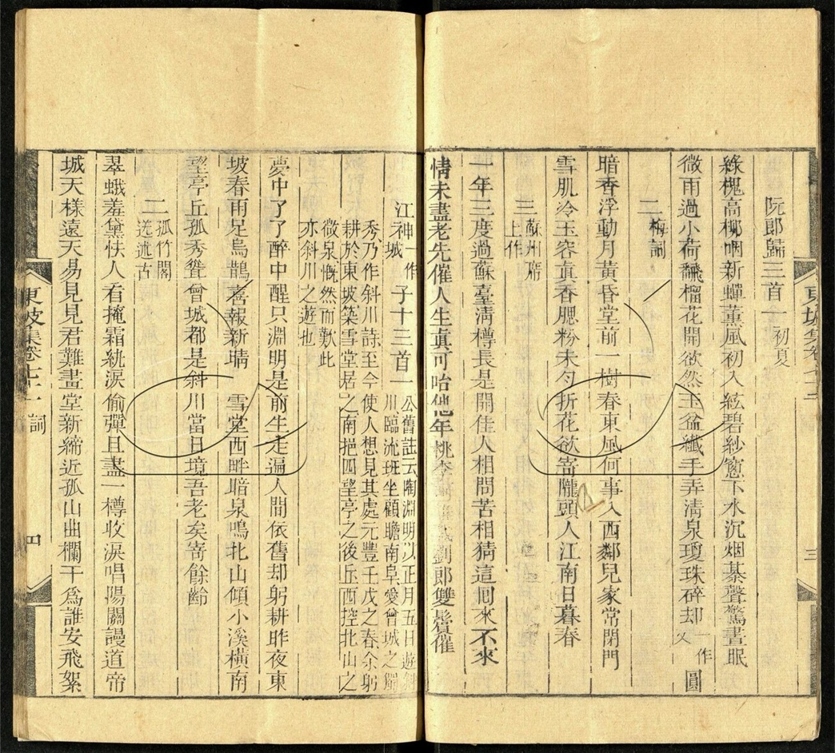 阮郎歸三首一初夏
綠槐高柳咽新蟬薰風初入絃碧紗窻下水沉烟棊聲驚晝眠
微雨過小荷飜榴花開欲然玉盆纖手弄清泉瓊珠碎却一作又圓
二梅詞
暗香浮動月黃昏堂前一樹春東風何事入西鄰兒家常閉門
雪肌冷玉容真香腮粉未勻折花欲寄隴頭人江南日暮春
三蘇州席上作
一年三度過蘇臺清樽長是開佳人相問苦相猜這囘來不來
情未盡老先催人生真可咍他年桃李劉郎雙鬢催
東坡集卷七十二
三
江神一作城子十三首一公舊註云陶淵明以正月五日遊斜
川臨流班坐顧瞻南阜愛曾城之獨
秀乃作斜川詩至今使人想見其處元豐壬戌之春余躬
耕於東坡築雪堂居之南挹四望亭之後丘西控北山之
微泉慨然而歎此
亦斜川之遊也
夢中了了醉中醒只淵明是前生走遍人間依舊却躬耕昨夜東
坡春雨足烏鵲喜報新晴 雪堂西畔暗泉鳴北山傾小溪橫南
望亭丘孤秀聳曾城都是斜川當日境吾老矣寄餘齡
二孤竹閣送述古
翠蛾羞黛怯人看掩霜紈淚偷彈且盡一樽收淚唱陽關謾道帝
城天樣遠天易見見君難畫堂新締近孤山曲欄干為誰安飛絮
東坡集卷七十二 詞
四